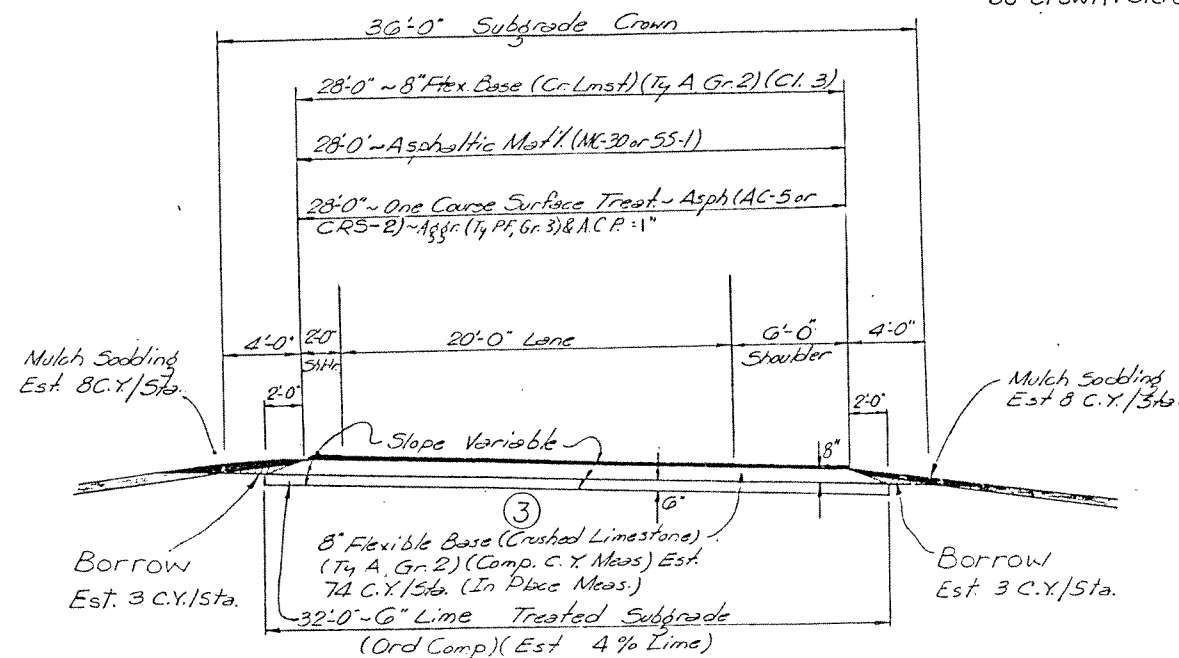 36'-0" Subgrade Crown
28'-0" ~ 8" Flex. Base (Cr. Lmst) (Ty A Gr. 2) (Cl. 3)
28'-0" ~ Asphaltic Mat'l. (MC-30 or SS-1)
28'-0" ~ One Course Surface Treat. ~ Asph (AC-5 or
CRS-2) ~ Aggr. (Ty PF, Gr. 3) & A.C.P. = 1"
4'-0"
2'-0"
Shldr.
20'-0" Lane
6'-0"
Shoulder
4'-0"
Mulch Sodding
Est. 8 C.Y./Sta.
Mulch Sodding
Est 8 C.Y./Sta.
2'-0"
2'-0"
Slope Variable
8"
6"
3
8" Flexible Base (Crushed Limestone)
(Ty A, Gr. 2) (Comp. C.Y. Meas) Est.
74 C.Y./Sta. (In Place Meas.)
Borrow
Est. 3 C.Y./Sta.
Borrow
Est. 3 C.Y./Sta.
32'-0" ~ 6" Lime Treated Subgrade
(Ord Comp) (Est 4 % Lime)